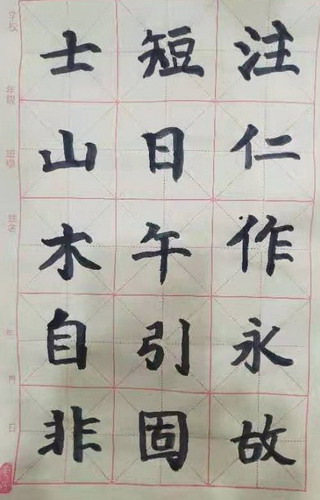 注仁作永故
短日午引固
士山木自非
学校 年级 班级 姓名 年 月 日